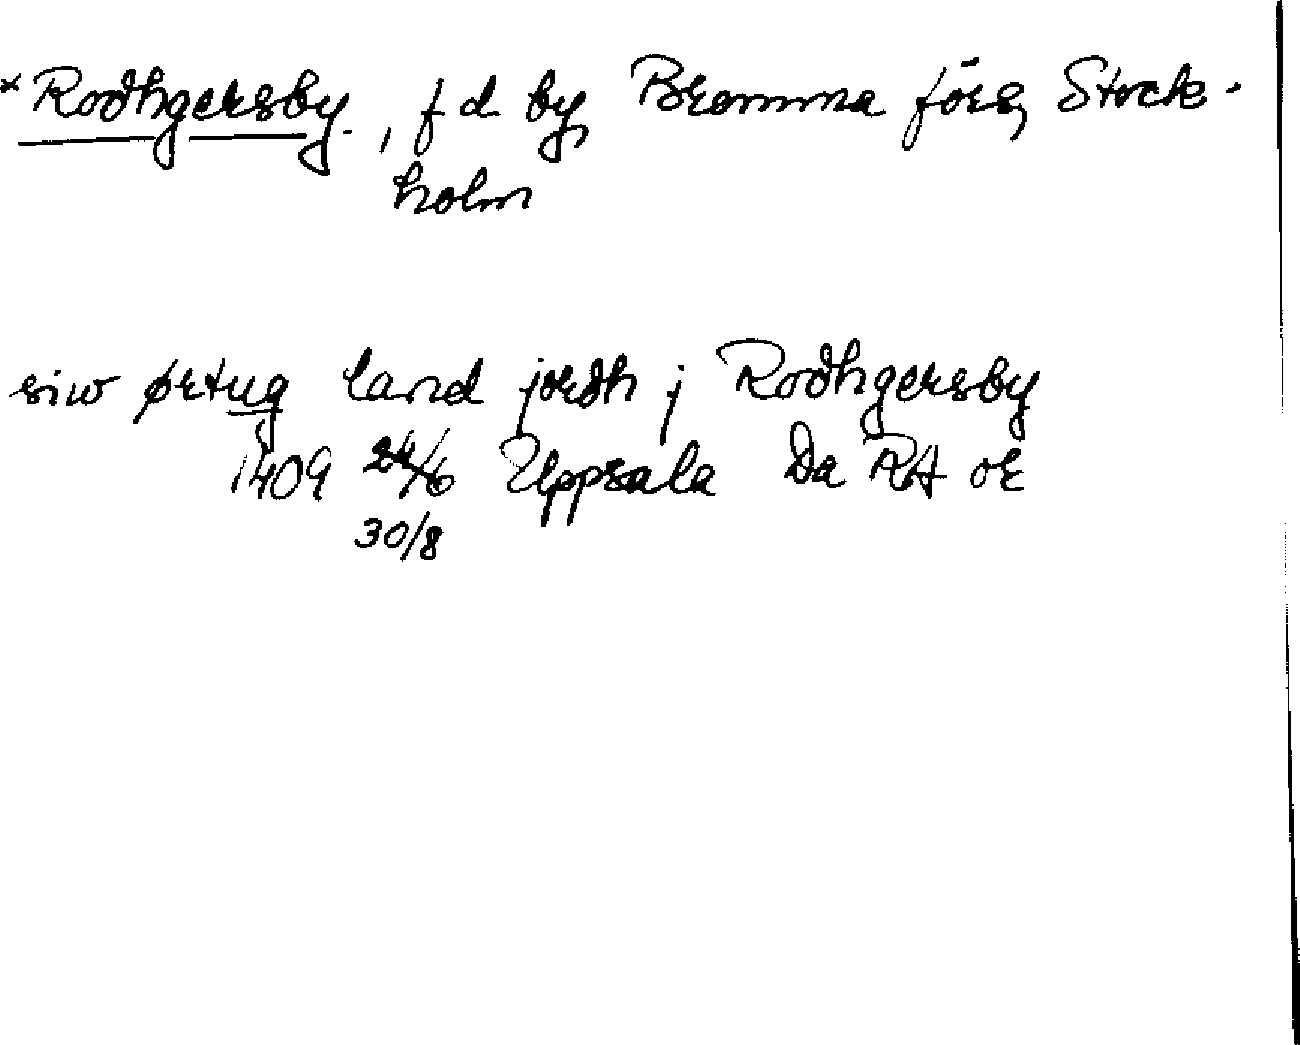 *Rodhgersby, f d by, Bromma förs, Stock-
holm
siw ørtug land jordh j Rodhgersby
1409 24/6 Uppsala Da RA or
30/8